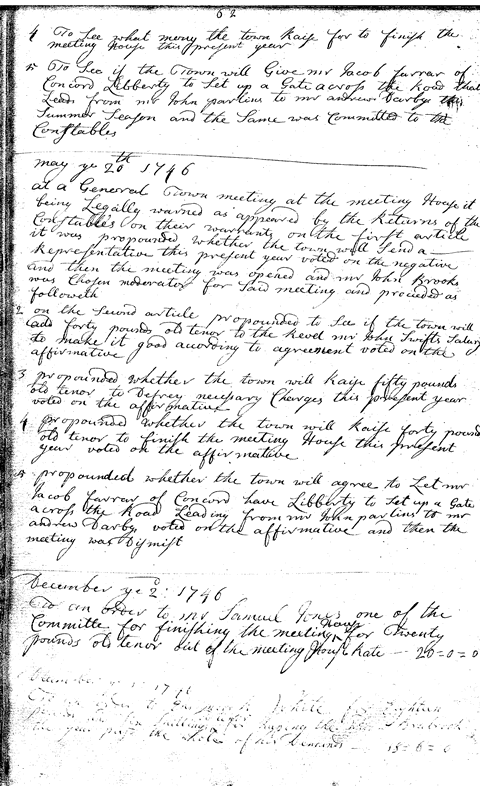 62
4 To See what mony the town Raise for to finish the
meeting House this present year
5 To See if the Town will Give mr Jacob farrar of
Concord Libberty to Set up a Gate across the Road that
Leads from mr John partins to mr andrew Darbys this
Summer Season and the Same was Committed to the
Constables
may ye 20th 1746
at a Generral Town meeting at the meeting House it
being Legally warned as appeared by the Returns of the
Constable's on their warrants on the first article
it was propounded whether the town will Send a
Representative this present year voted on the negative
and then the meeting was opened and mr John Brooks
was Chosen moderator for Said meeting and proceded as
followeth
2 on the Second article propounded to See if the town will
add forty pounds old tenor to the Revd mr John Swifts Salary
to make it good according to agreement voted on the
affirmative
3 propounded whether the town will Raise fifty pounds
old tenor to Defrey necessary Charges this present year
voted on the affirmative
4 propounded whether the town will Raise forty pounds
old tenor to finish the meeting House this present
year voted on the affirmative
5 propounded whether the town will agree to Let mr
Jacob farrar of Concord have Libberty to Set up a Gate
across the Road Leading from mr John partins to mr
andrew Darbys voted on the affirmative and then the
meeting was Dismist
December ye 2d: 1746
To an order to mr Samuel Jones one of the
Committe for finishing the meeting House for Twenty
pounds old tenor out of the meeting House Rate — 20=0=0
December 1746
To an order to White for Eighteen
pounds Six Shillings
the year past the whole of his Demands — 18=6=0